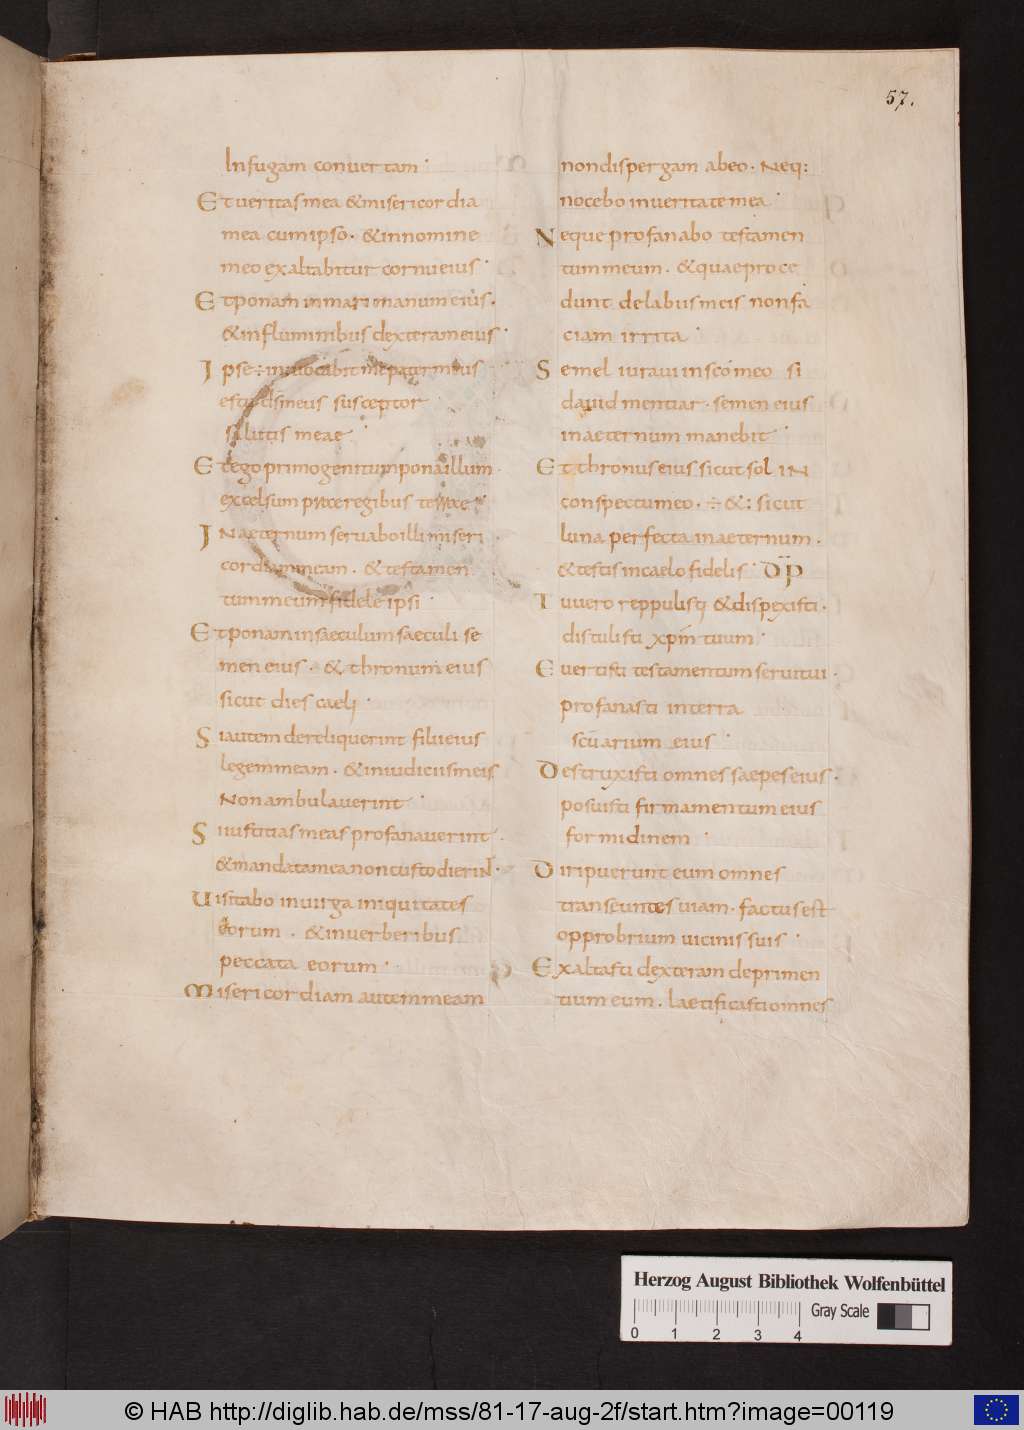 57.
In fugam convertam.
Et veritas mea & misericordia
mea cum ipso. & in nomine
meo exaltabitur cornu eius.
Et ponam in mari manum eius.
& in fluminibus dexteram eius.
Ipse ÷ invocabit me pater meus
es tu ds meus susceptor
salutis meae.
Et ego primogenitum ponā illum.
excelsum prae regibus terrae.
IN aeternum servabo illi miseri
cordiam meam. & testamen
tum meum fidele ipsi.
Et ponam in saeculum saeculi se
men eius. & thronum eius
sicut dies caeli.
Si autem dereliquerint filii eius
legem meam. & in iudiciis meis
Non ambulaverint.
Si iustitias meas profanaverint.
& mandata mea non custodierint.
Visitabo in virga iniquitates
eorum. & in verberibus
peccata eorum.
Misericordiam autem meam
non dispergam ab eo. Neq:
nocebo in veritate mea.
Neque profanabo testamen
tum meum. & quae proce
dunt de labiis meis non fa
ciam irrita.
Semel iuravi in scō meo si
david mentiar. semen eius
in aeternum manebit.
Et thronus eius sicut sol IN
conspectu meo. ÷ & : sicut
luna perfecta in aeternum.
& testis in caelo fidelis. DP
Tu vero reppulisti & dispexisti.
distulisti xpm tuum.
Evertisti testamentum servi tui.
profanasti in terra
scūarium eius.
Destruxisti omnes saepes eius.
posuisti firmamentum eius
formidinem.
Diripuerunt eum omnes
transeuntes viam. factus est
opprobrium vicinis suis.
Exaltasti dexteram deprimen
tium eum. laetificasti omnes
Herzog August Bibliothek Wolfenbüttel
0 1 2 3 4 Gray Scale
© HAB http://diglib.hab.de/mss/81-17-aug-2f/start.htm?image=00119